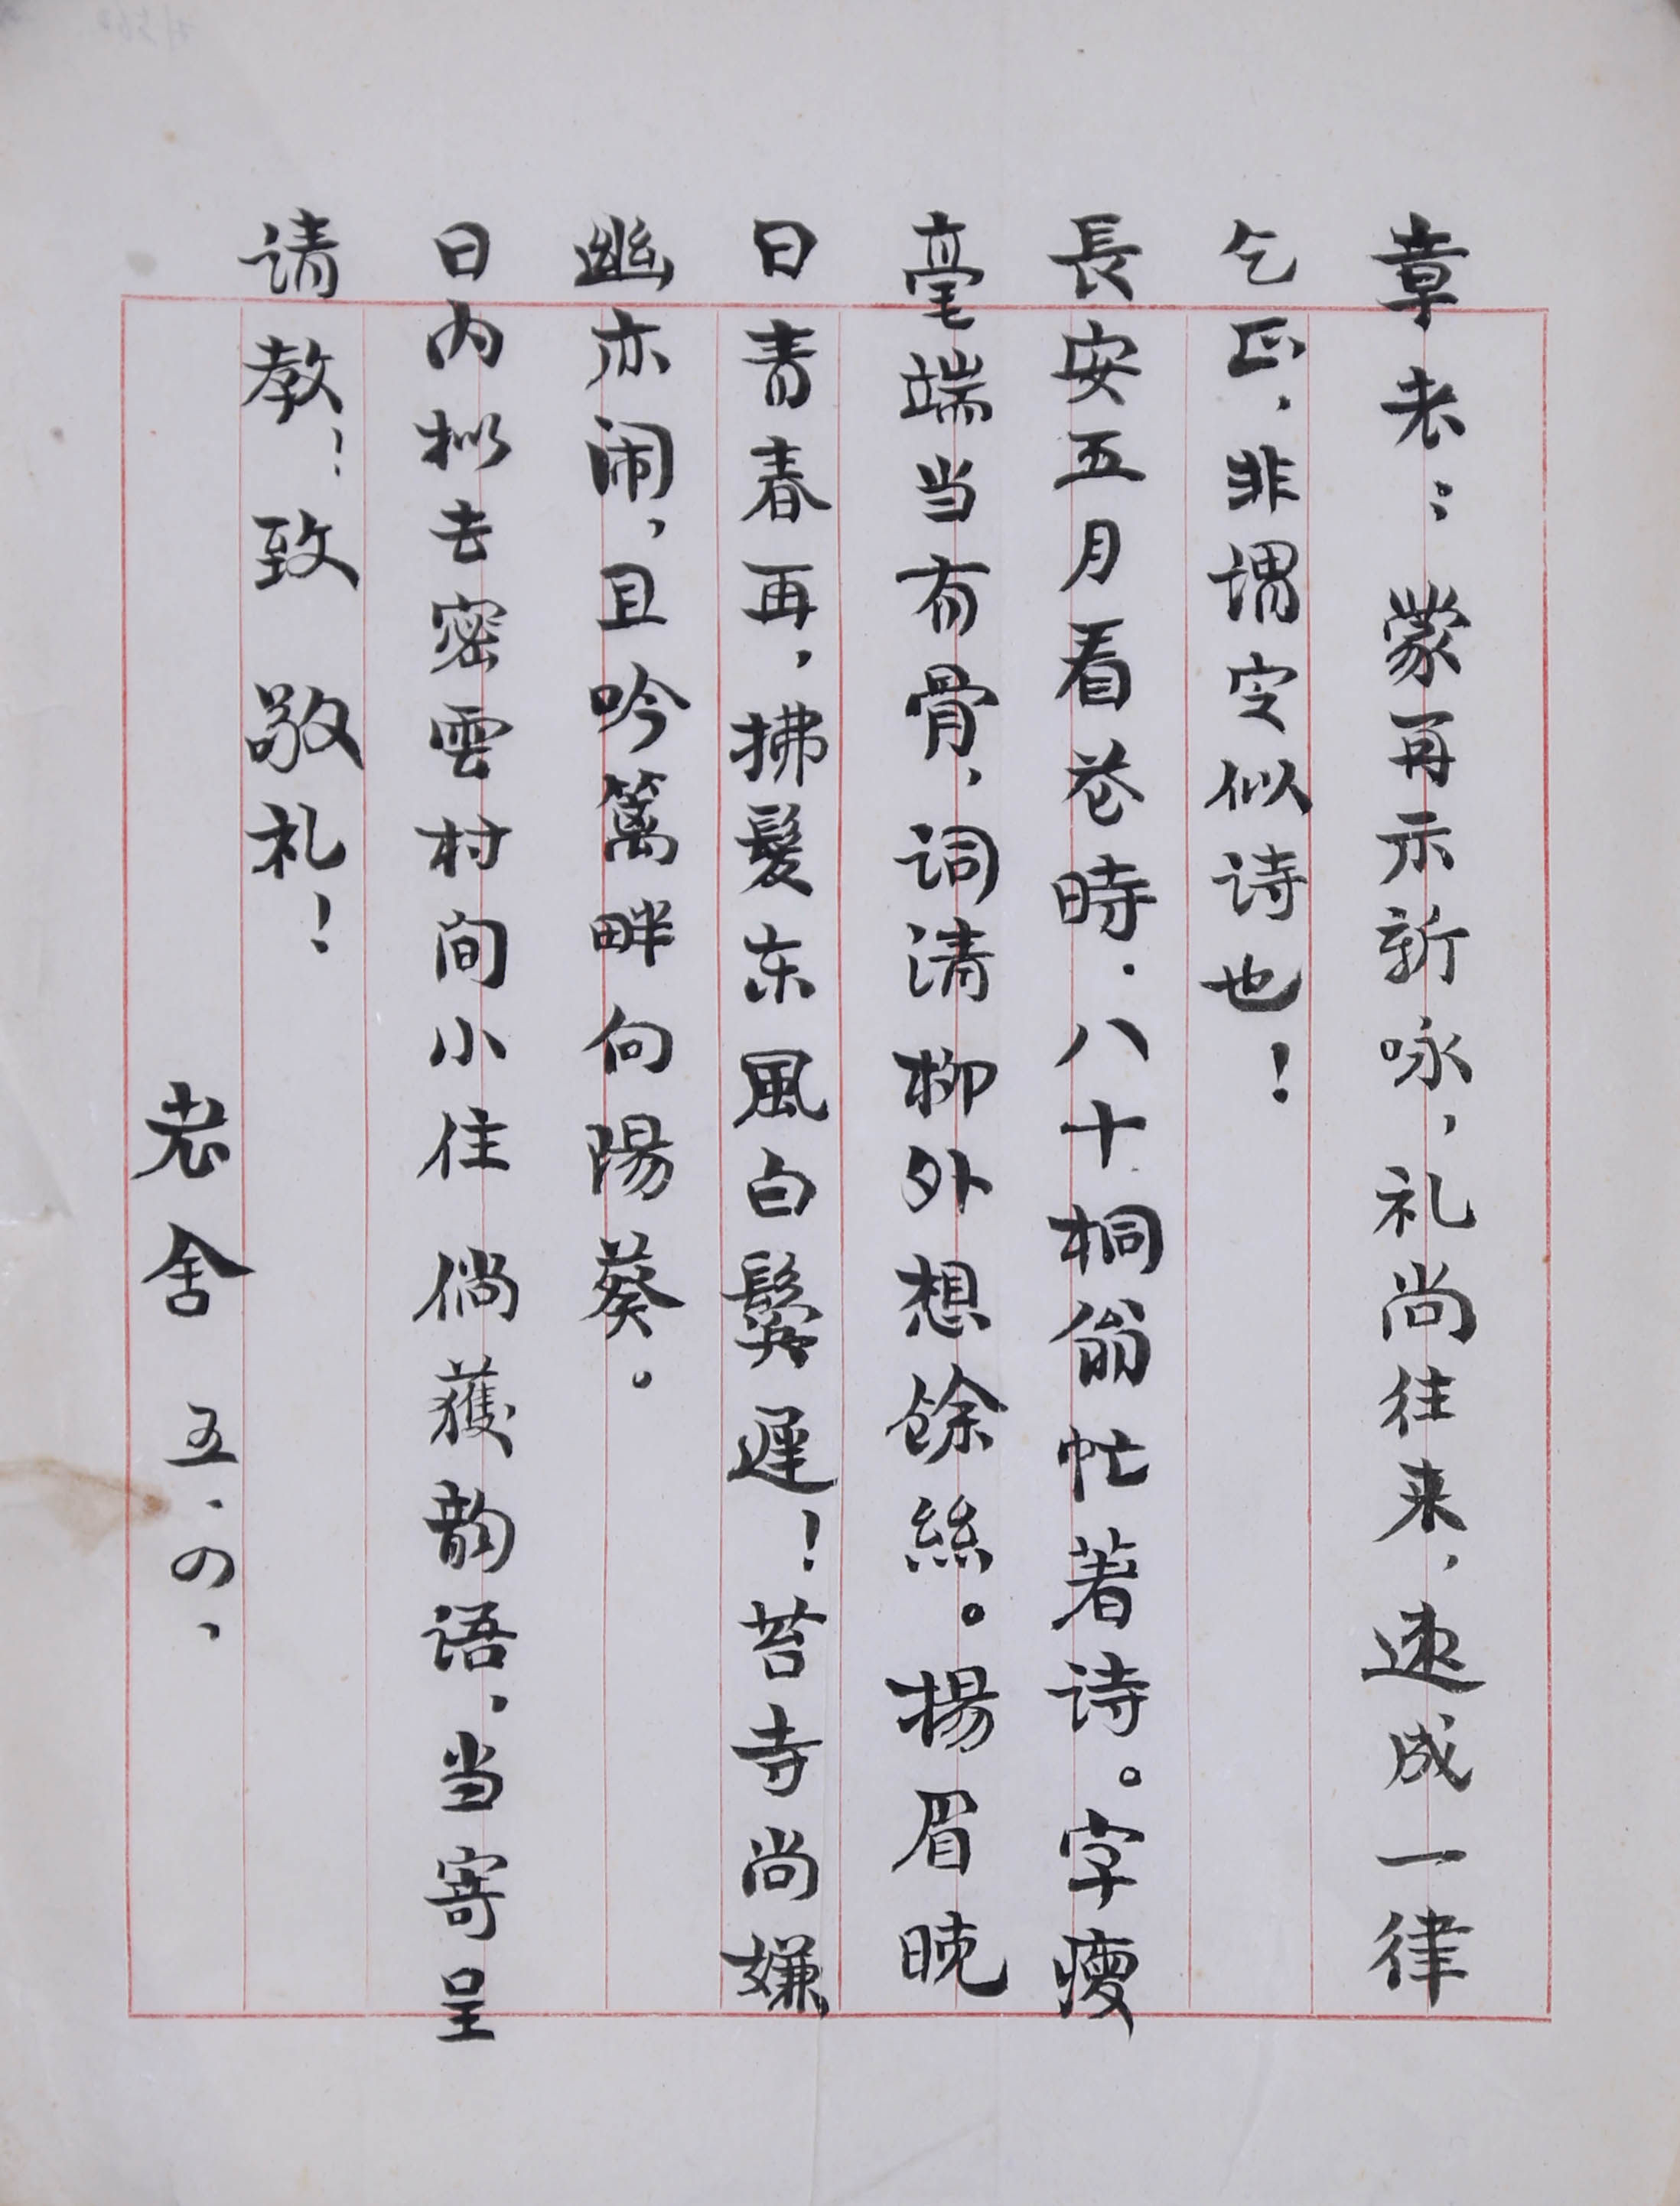 章老：蒙再示新咏，礼尚往来，速成一律
乞正，非谓定似诗也！
長安五月看花時，八十桐翁忙著诗。字瘦
毫端当有骨，词清柳外想餘絲。揚眉晓
日青春再，拂髮东風白鬓遲！苔寺尚嫌
幽亦闹，且吟篱畔向陽葵。
日内拟去密雲村间小住 倘獲韵语，当寄呈
请教！致 敬礼！
老舍 五、四、